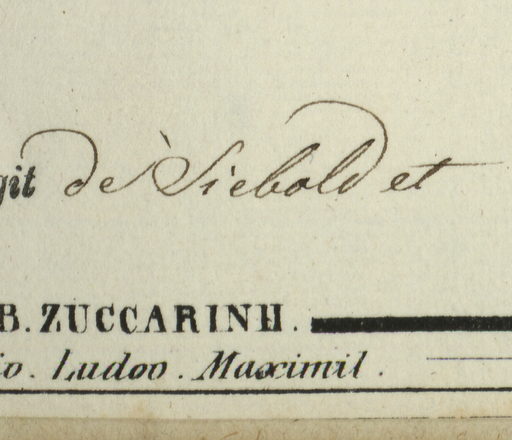 git de Siebold et
B. ZUCCARINII.
io. Ludov. Maximil.